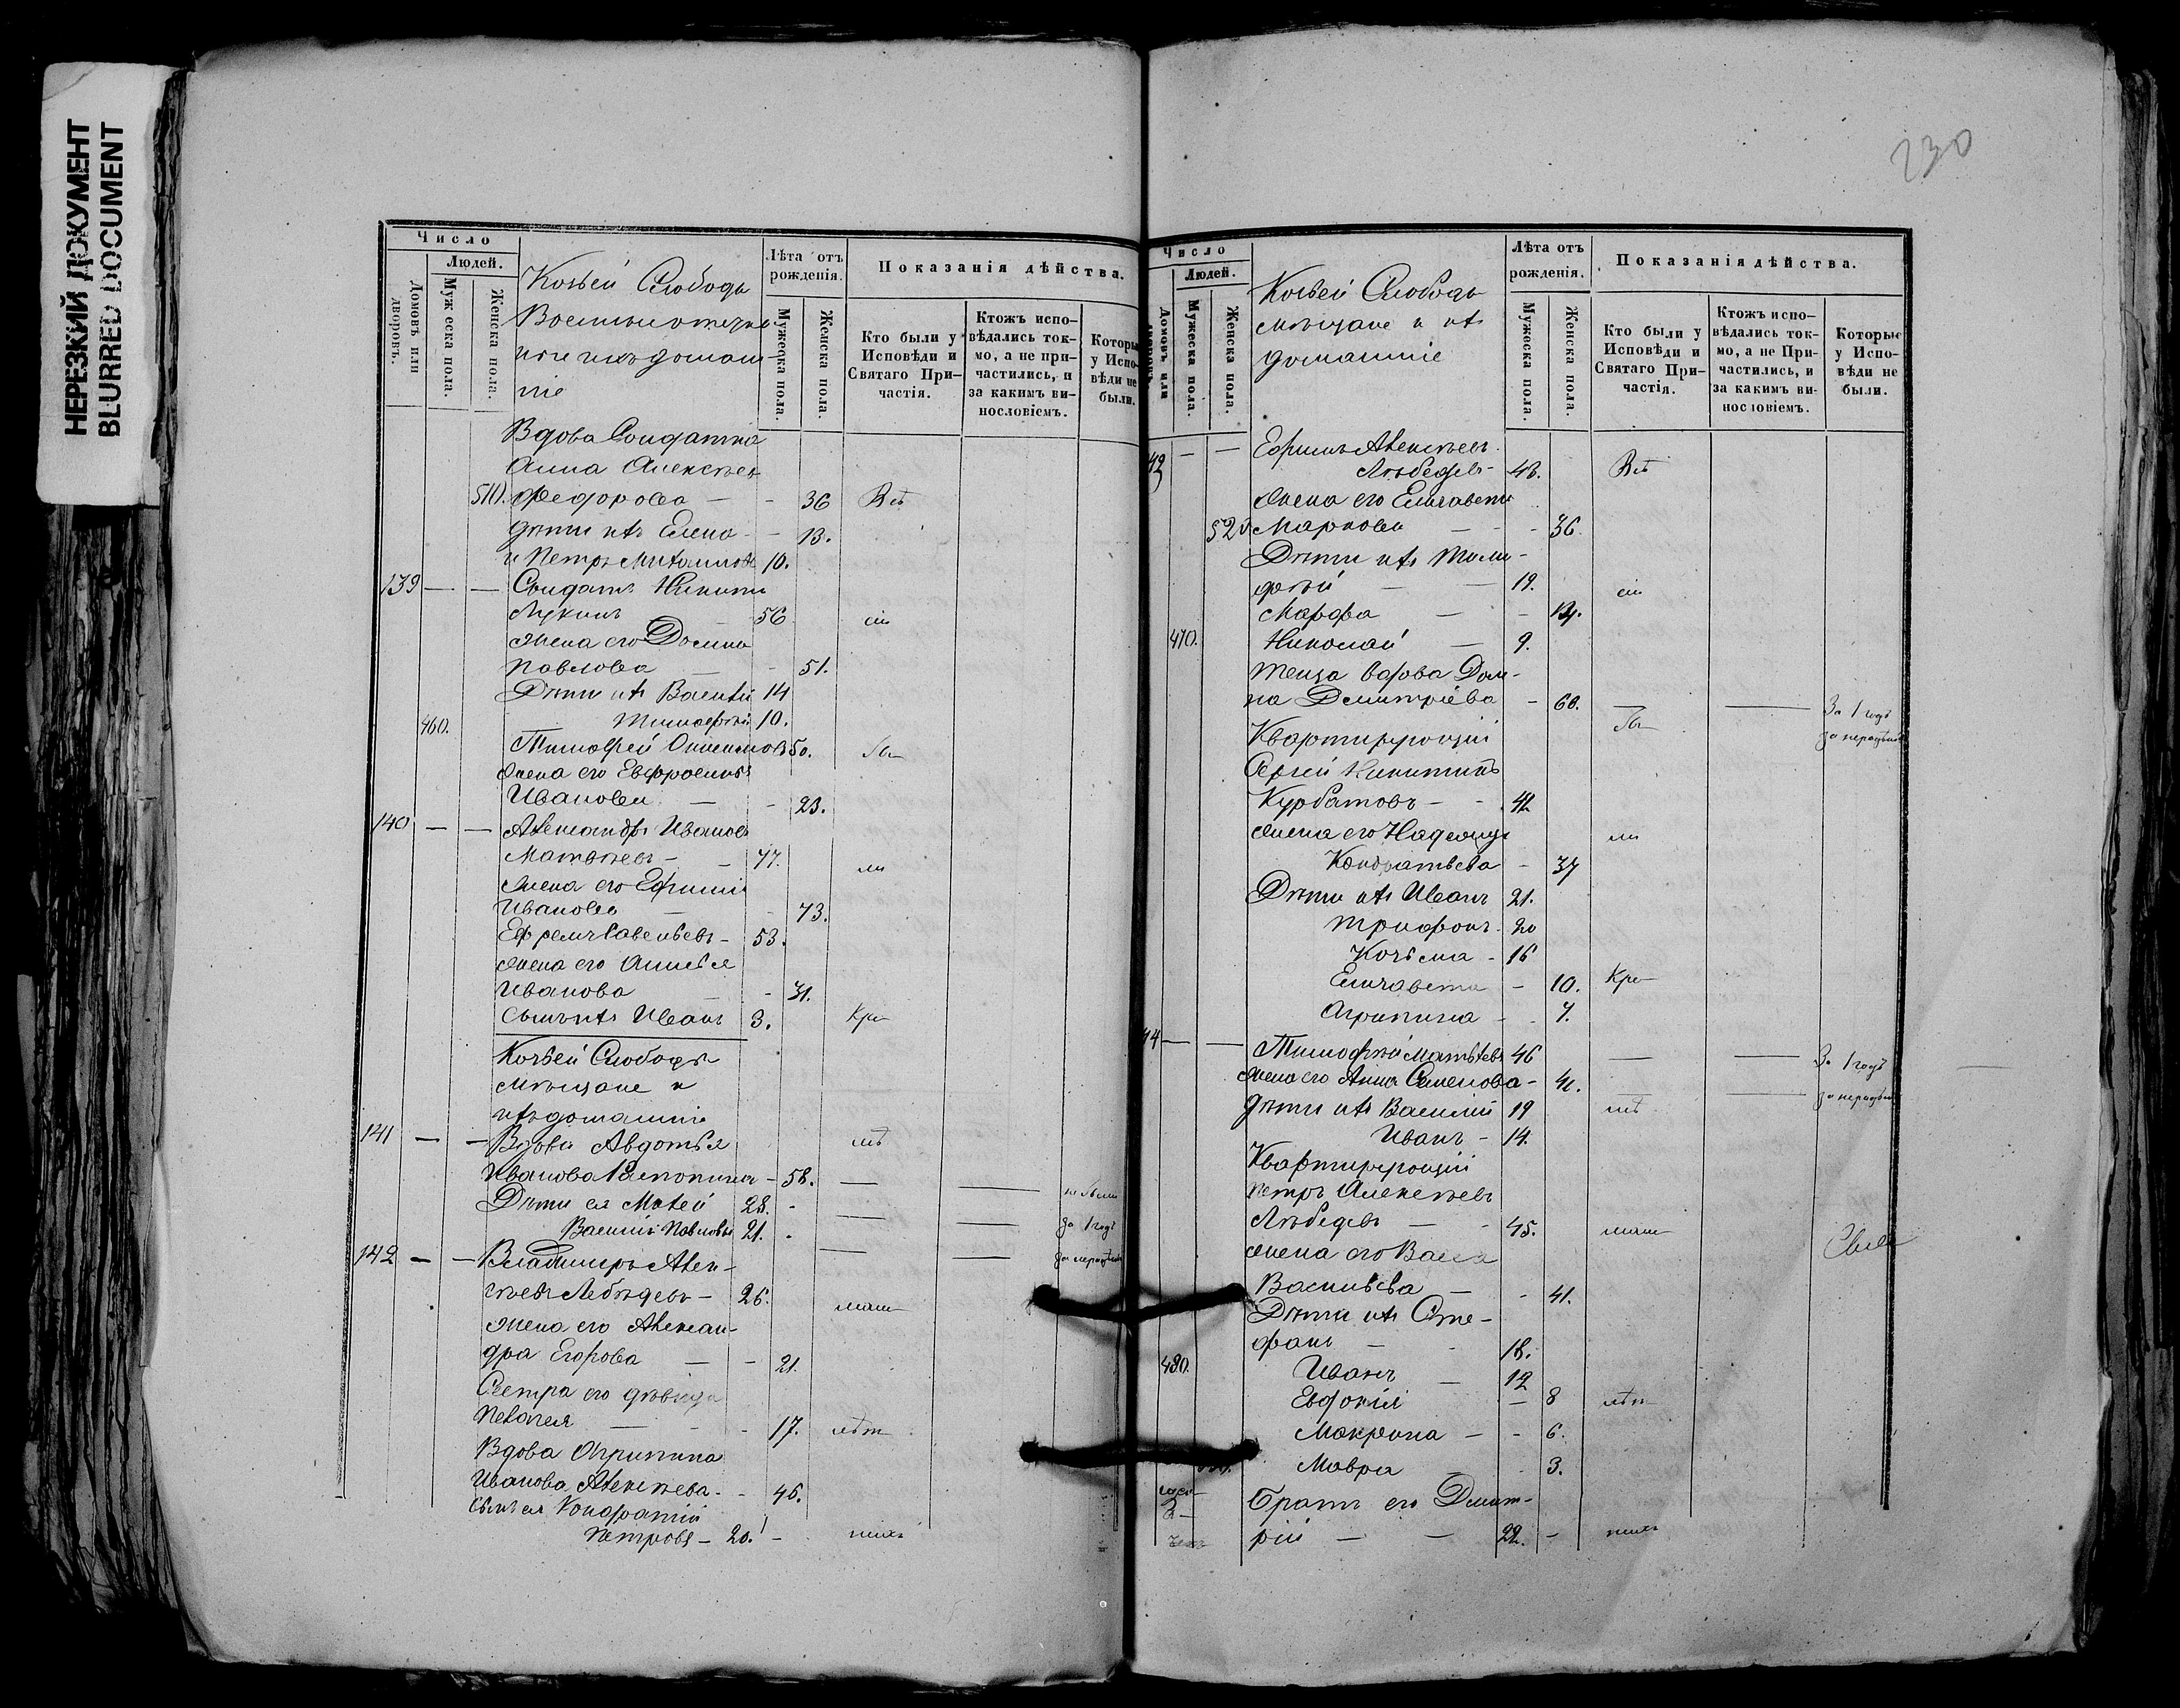 НЕРЕЗКИЙ ДОКУМЕНТ
BLURRED DOCUMENT
230
Число
Людей.
Домовъ или дворовъ.
Мужеска пола.
Женска пола.
Козьей Слободы
домаш
ніе
Лѣта отъ рожденія.
Мужеска пола.
Женска пола.
Показанія дѣйства.
Кто были у Исповѣди и Святаго Причастія.
Ктожъ исповѣдались токмо, а не причастились, и за какимъ винословіемъ.
Которые у Исповѣди не были.
Вдова Солдатка
Анна Алексѣев
510. Федорова — - 36 Всѣ
дѣти ихъ Елена - - 13.
и Петръ Михаиловъ 10.
139 — — Солдатъ Никита
Лукинъ — 56
жена его Домна
Павлова — - 51.
Дѣти ихъ Василій 14
460. Тимофѣй 10.
Тимофей 50. бы
жена его Евфросинья
Иванова — - 23.
140 — — Александръ Ивановъ
Матвѣевъ - - 77. ли
жена его Ефимія
Иванова — - 73.
Ефремъ Савельевъ - 53.
жена его Анисья
Иванова - 31.
Сынъ ихъ Иванъ 3. Кро
Козьей Слободы
мѣщане и
ихъ домашніе
141 — — Вдова Авдотья
Иванова - 58. —
Дѣти ея Матвей 28. - не были
Василій Павловы 21. - за 1 годъ
142 — — Владимиръ Алек-
сѣевъ Лебѣдевъ - 26.
жена его Алексан-
дра Егорова — - 21.
Сестра его дѣвица
Пелагея — - 17. лѣт
Вдова Агрипина
Иванова Алексѣева - - 46.
Сынъ ея Кондратій
Петровъ - 20. -
Число
Людей.
Домовъ или дворовъ
Мужеска пола.
Женска пола.
Козьей Слободы
мѣщане и ихъ
домашніе
Лѣта отъ рожденія.
Мужеска пола.
Женска пола.
Показанія дѣйства.
Кто были у Исповѣди и Святаго Причастія.
Ктожъ исповѣдались токмо, а не Причастились, и за какимъ винословіемъ.
Которые у Исповѣди не были.
— — Ефимъ Алексѣевъ
Лѣбедевъ - 48. Всѣ
жена его Елизавета
520 Маркова — - - 36
Дѣти ихъ Тимо-
фѣй — — 19.
Марфа — -
470. Николай — 9.
Теща вдова Дом-
на Дмитріева - 60. — — За 1 годъ
Квартирующій бы
Сергей Никитинъ
Курбатовъ - -
жена его Надежда ли
Кондратьева - 37
Дѣти ихъ Иванъ 21.
Трифонъ - 20
Козьма - 16
Елизавета - 10. Кро
Агрипина - - 7.
— — Тимофѣй Матвѣевъ 46 — — За 1 годъ
жена его Анна Семенова -
дѣти ихъ Василій 19
Иванъ - 14.
Квартирующій
Петръ Алексѣевъ
Лѣбедевъ — - 45.
жена его Васса
Васильева — - 41.
Дѣти ихъ Сте-
фанъ — - 18.
480. Иванъ — 12
Евдокія — 8 лѣт
Макрина - - 6.
Мавра — - 3.
Братъ его Дмит-
рій — — 22. -